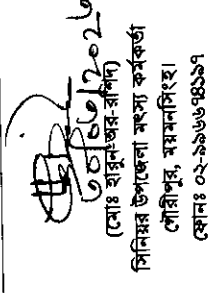 ৩০/০৬/২০২৬
(মোঃ হারুন-অর-রশিদ)
সিনিয়র উপজেলা মৎস্য কর্মকর্তা
গৌরীপুর, ময়মনসিংহ।
ফোনঃ ০২-৯৯৬৬৭৪১৯৭